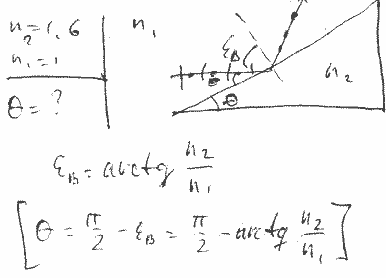 n₂ = 1,6
n₁ = 1
θ = ?
n₁
ε_B
n₂
θ
ε_B = arctg n₂/n₁
[θ = π/2 - ε_B = π/2 - arctg n₂/n₁]